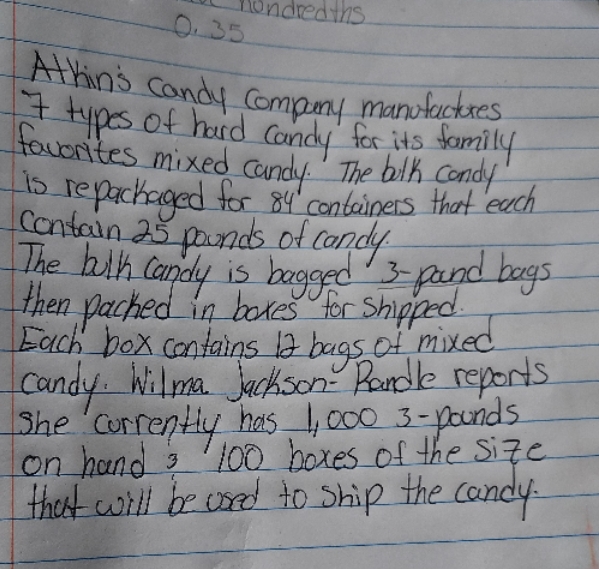 hondredths
0.35
Athin's Candy Company manufactures
7 types of hard candy for its family
favorites mixed candy. The bulk candy
is repackaged for 84 containers that each
Contain 25 pounds of candy.
The bulk candy is bagged 3-pound bags
then packed in boxes for shipped.
Each box contains 12 bags of mixed
candy. Wilma Jackson-Randle reports
she currently has 1,000 3-pounds
on hand 3 100 boxes of the size
that will be used to ship the candy.